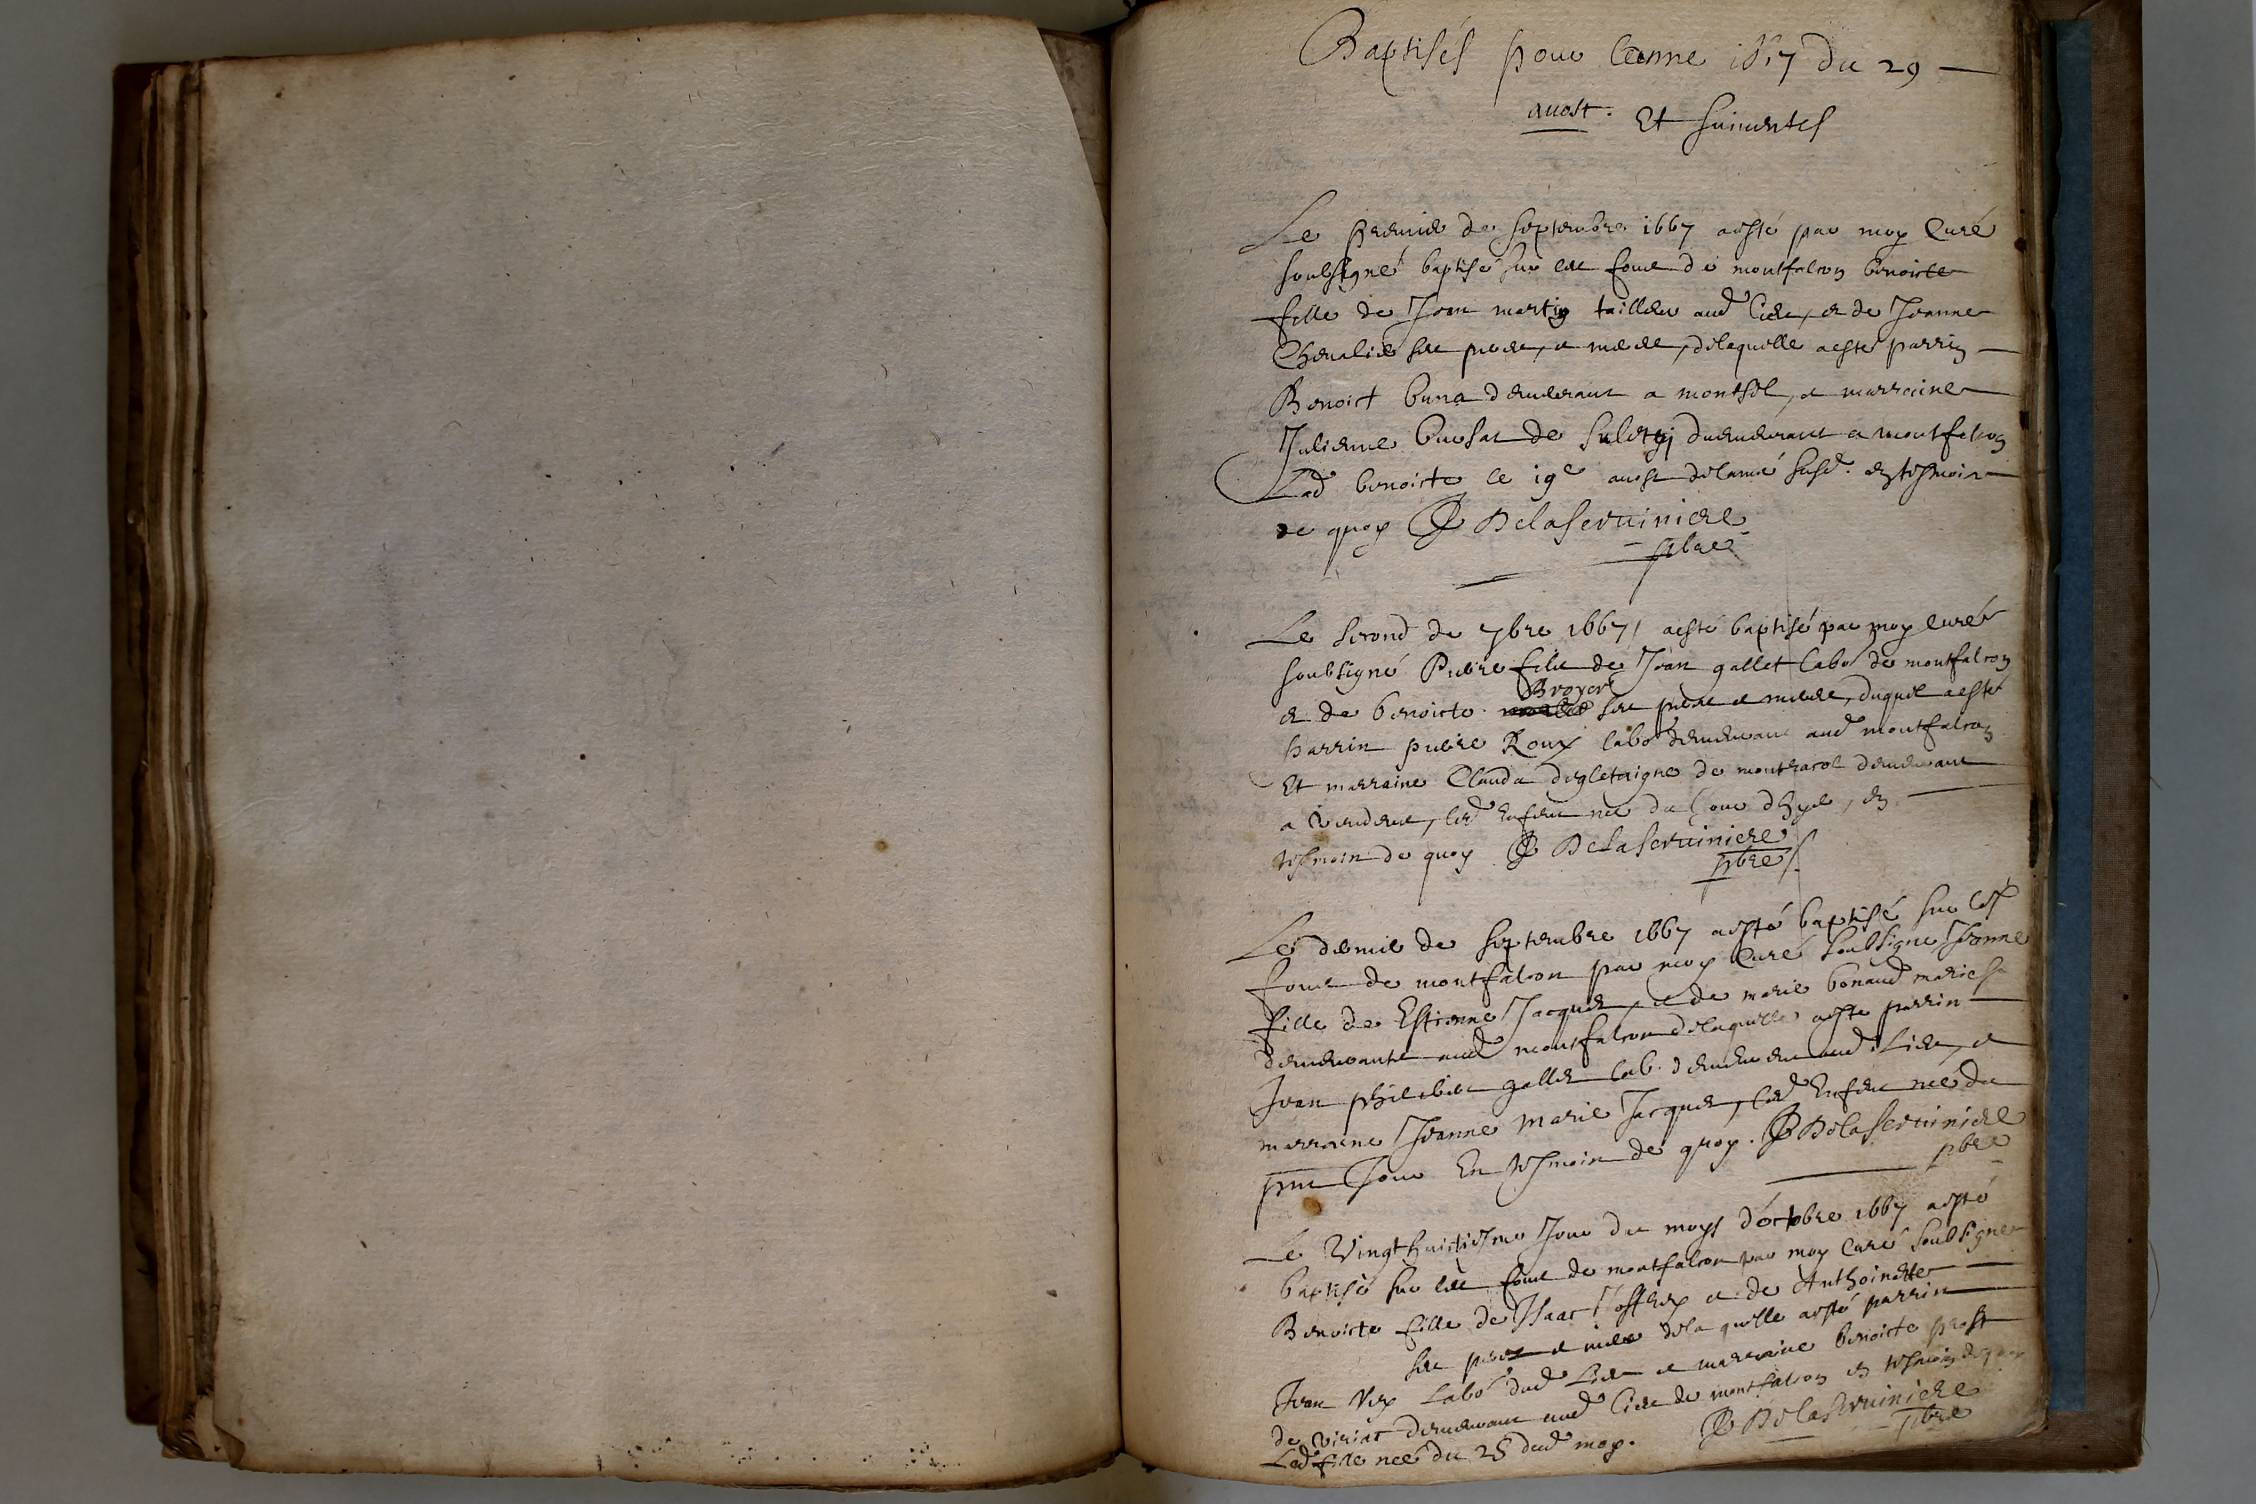 Baptisés pour lanne 1667 du 29
auost. Et suiuantes
Le premier de septembre 1667 aesté par moy Curé
soubsigné baptisé sur les fons de montfalcon benoicte
fille de Jean martin tailleur aud lieu, et de Jeanne
Chevalier ses pere, et mere, delaquelle aesté parrin
Benoict demeurant a et marraine
Julienne de demeurant a montfalcon
Lad benoicte le 19e auost delanné susd. en tesmoin
de quoy Delaserviniere
pbre
Le second de 7bre 1667 aesté baptisé par moy curé
soubsigné Pierre filz de Jean gallet labo de montfalcon
Broyer
et de benoicte ses pere et mere, duquel aesté
parrin pierre Roux labo demeurant aud montfalcon
Et marraine Clauda de demeurant
a led Enfant né du Jour en
tesmoin de quoy Delaserviniere
pbre
Le dernier de septembre 1667 aesté baptisé sur les
fons de montfalcon par moy Curé soubsigne Jeanne
fille de Estienne Jacquet, et de marie bonaud mariés
demeurants aud montfalcon delaquelle aesté parrin
Jean philibert gallet lab. demeurant aud Lieu, et
marraine Jeanne Marie Jacquet, led Enfant née du
pnt Jour En tesmoin de quoy. Delaserviniere
pbre
Le Vingthuictiesme Jour du moys d'octobre 1667 aesté
baptisé sur les fons de montfalcon par moy Curé soubsigne
Benoicte fille de Isaac et de Anthoinette
ses pere et mere dela quelle aesté parrin
Jean labo dud Lieu et marraine benoicte prost
de viriat demeurant aud lieu de montfalcon en tesmoin de quoy
Lad fille née du 25 dud moy. Delaserviniere
pbre